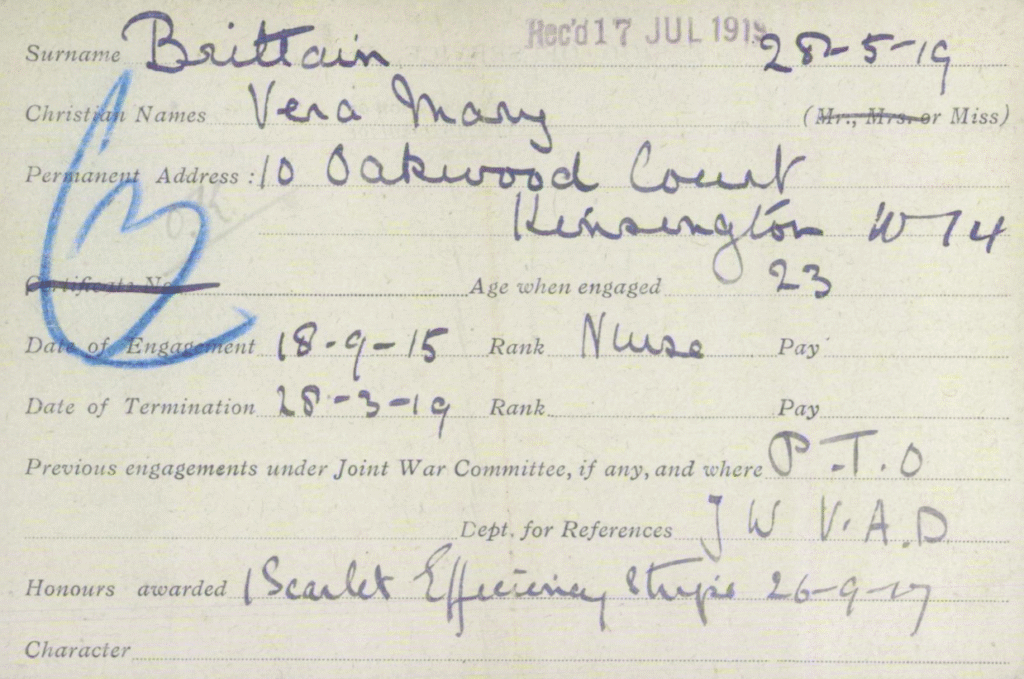 Rec'd 17 JUL 1919
Surname Brittain 28-5-19
Christian Names Vera Mary (Mr., Mrs. or Miss)
Permanent Address: 10 Oakwood Court
Kensington W 14
Certificate No. Age when engaged 23
Date of Engagement 18-9-15 Rank Nurse Pay
Date of Termination 28-3-19 Rank Pay
Previous engagements under Joint War Committee, if any, and where P.T.O
Dept. for References J W V.A.D
Honours awarded 1 Scarlet Efficiency Stripe 26-9-17
Character